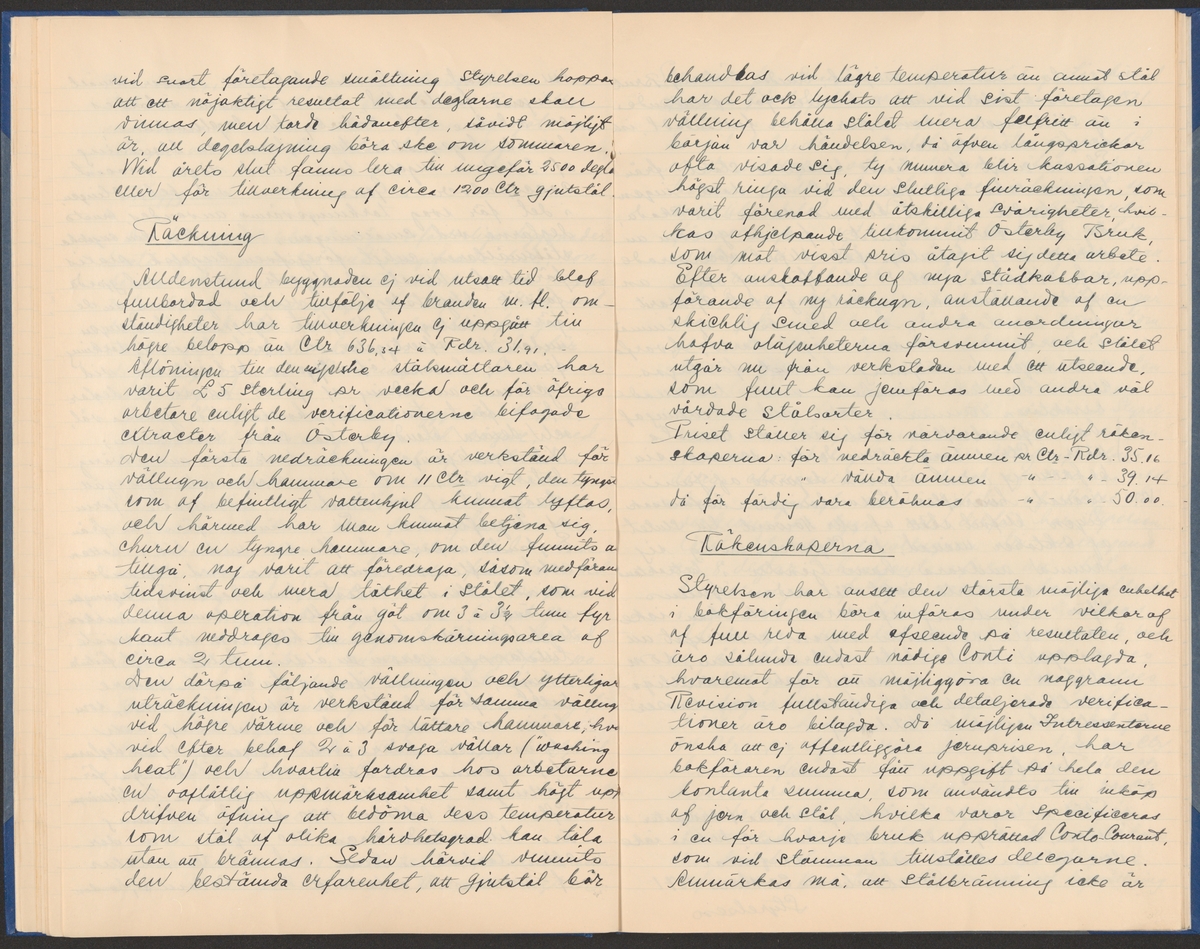 vid snart företagande smältning Styrelsen hoppas
att ett nöjaktigt resultat med deglarne skall
vinnas, men torde hädanefter, såvidt möjligt
är, all degelslagning böra ske om sommaren.
Wid årets slut fanns lera till ungefär 2500 degla
eller för tillverkning af circa 1200 Ctr gjutstål
Räckning
Alldenstund byggnaden ej vid utsatt tid blef
fullbordad och tillfölje af branden m. fl. om-
ständigheter har tillverkningen ej uppgått till
högre belopp än Ctr 636,34 à Rdr. 31,91.
Aflöningen till den engelske stålsmältaren har
varit £ 5 Sterling pr vecka och för öfrige
arbetare enligt de verificationerne bifogade
extracter från Österby.
Den första nedräckningen är verkställd för
vällugn och hammare om 11 Ctr vigt, den tyngsta
som af befintligt vattenhjul kunnat lyftas,
och härmed har man kunnat betjena sig,
ehuru en tyngre hammare, om den funnits a
tillgå, nog varit att föredraga, såsom medföran
tidsvinst och mera täthet i stålet, som vid
denna operation från göt om 3 à 3½ tum fyr
kant neddrages till genomskärningsarea af
circa 2 tum.
Den därpå följande vällningen och ytterligar
uträckningen är verkställd för samma vällug
vid högre värme och för lättare hammare, hva
vid efter behof 2 à 3 svaga vällar ("washing
heat") och hvartill fordras hos arbetarne
en oaflåtlig uppmärksamhet samt högt upp
drifven öfning att bedöma dess temperatur
som stål af olika hårdhetsgrad kan tåla
utan att brännas. Sedan härvid vunnits
den bestämda erfarenhet, att gjutstål bör
behandlas vid lägre temperatur än annat stål
har det ock lyckats att vid sist företagen
vällning behålla stålet mera felfritt än i
början var händelsen, då äfven långsprickor
ofta visade sig, ty numera blir kassationen
högst ringa vid den slutliga finräckningen, som
varit förenad med åtskilliga svårigheter, hvil-
kas afhjelpande tillkommit Österby Bruk,
som mot visst pris åtagit sig detta arbete.
Efter anskaffande af nya städkabbar, upp-
förande af ny räckugn, anställande af en
skicklig smed och andra anordningar
hafva olägenheterna försvunnit, och stålet
utgår nu från verkstaden med ett utseende,
som fullt kan jemföras med andra väl
vårdade stålsorter.
Priset ställer sig för närvarande enligt räken-
skaperna: för nedräckta ämnen pr Ctr - Rdr. 35.16
" vällda ämnen -"- - " - 39.14
då för färdig vara beräknas -"- " - 50.00.
Räkenskaperna
Styrelsen har ansett den största möjliga enkelhet
i bokföringen böra införas under vilkor af
af full reda med afseende på resultaten, och
äro sålunda endast nödige Conti upplagda,
hvaremot för att möjliggöra en noggrann
Revision fullständiga och detaljerade verifica-
tioner äro bilagda. Då möjligen Intressenterne
önska att ej offentliggöra jernprisen, har
bokföraren endast fått uppgift på hela den
kontanta summa, som användts till inköp
af jern och stål, hvilka varor specificeras
i en för hvarje bruk upprättad Conto Courant,
som vid stämman tillställes delegarne.
Anmärkas må, att stålbränning icke är